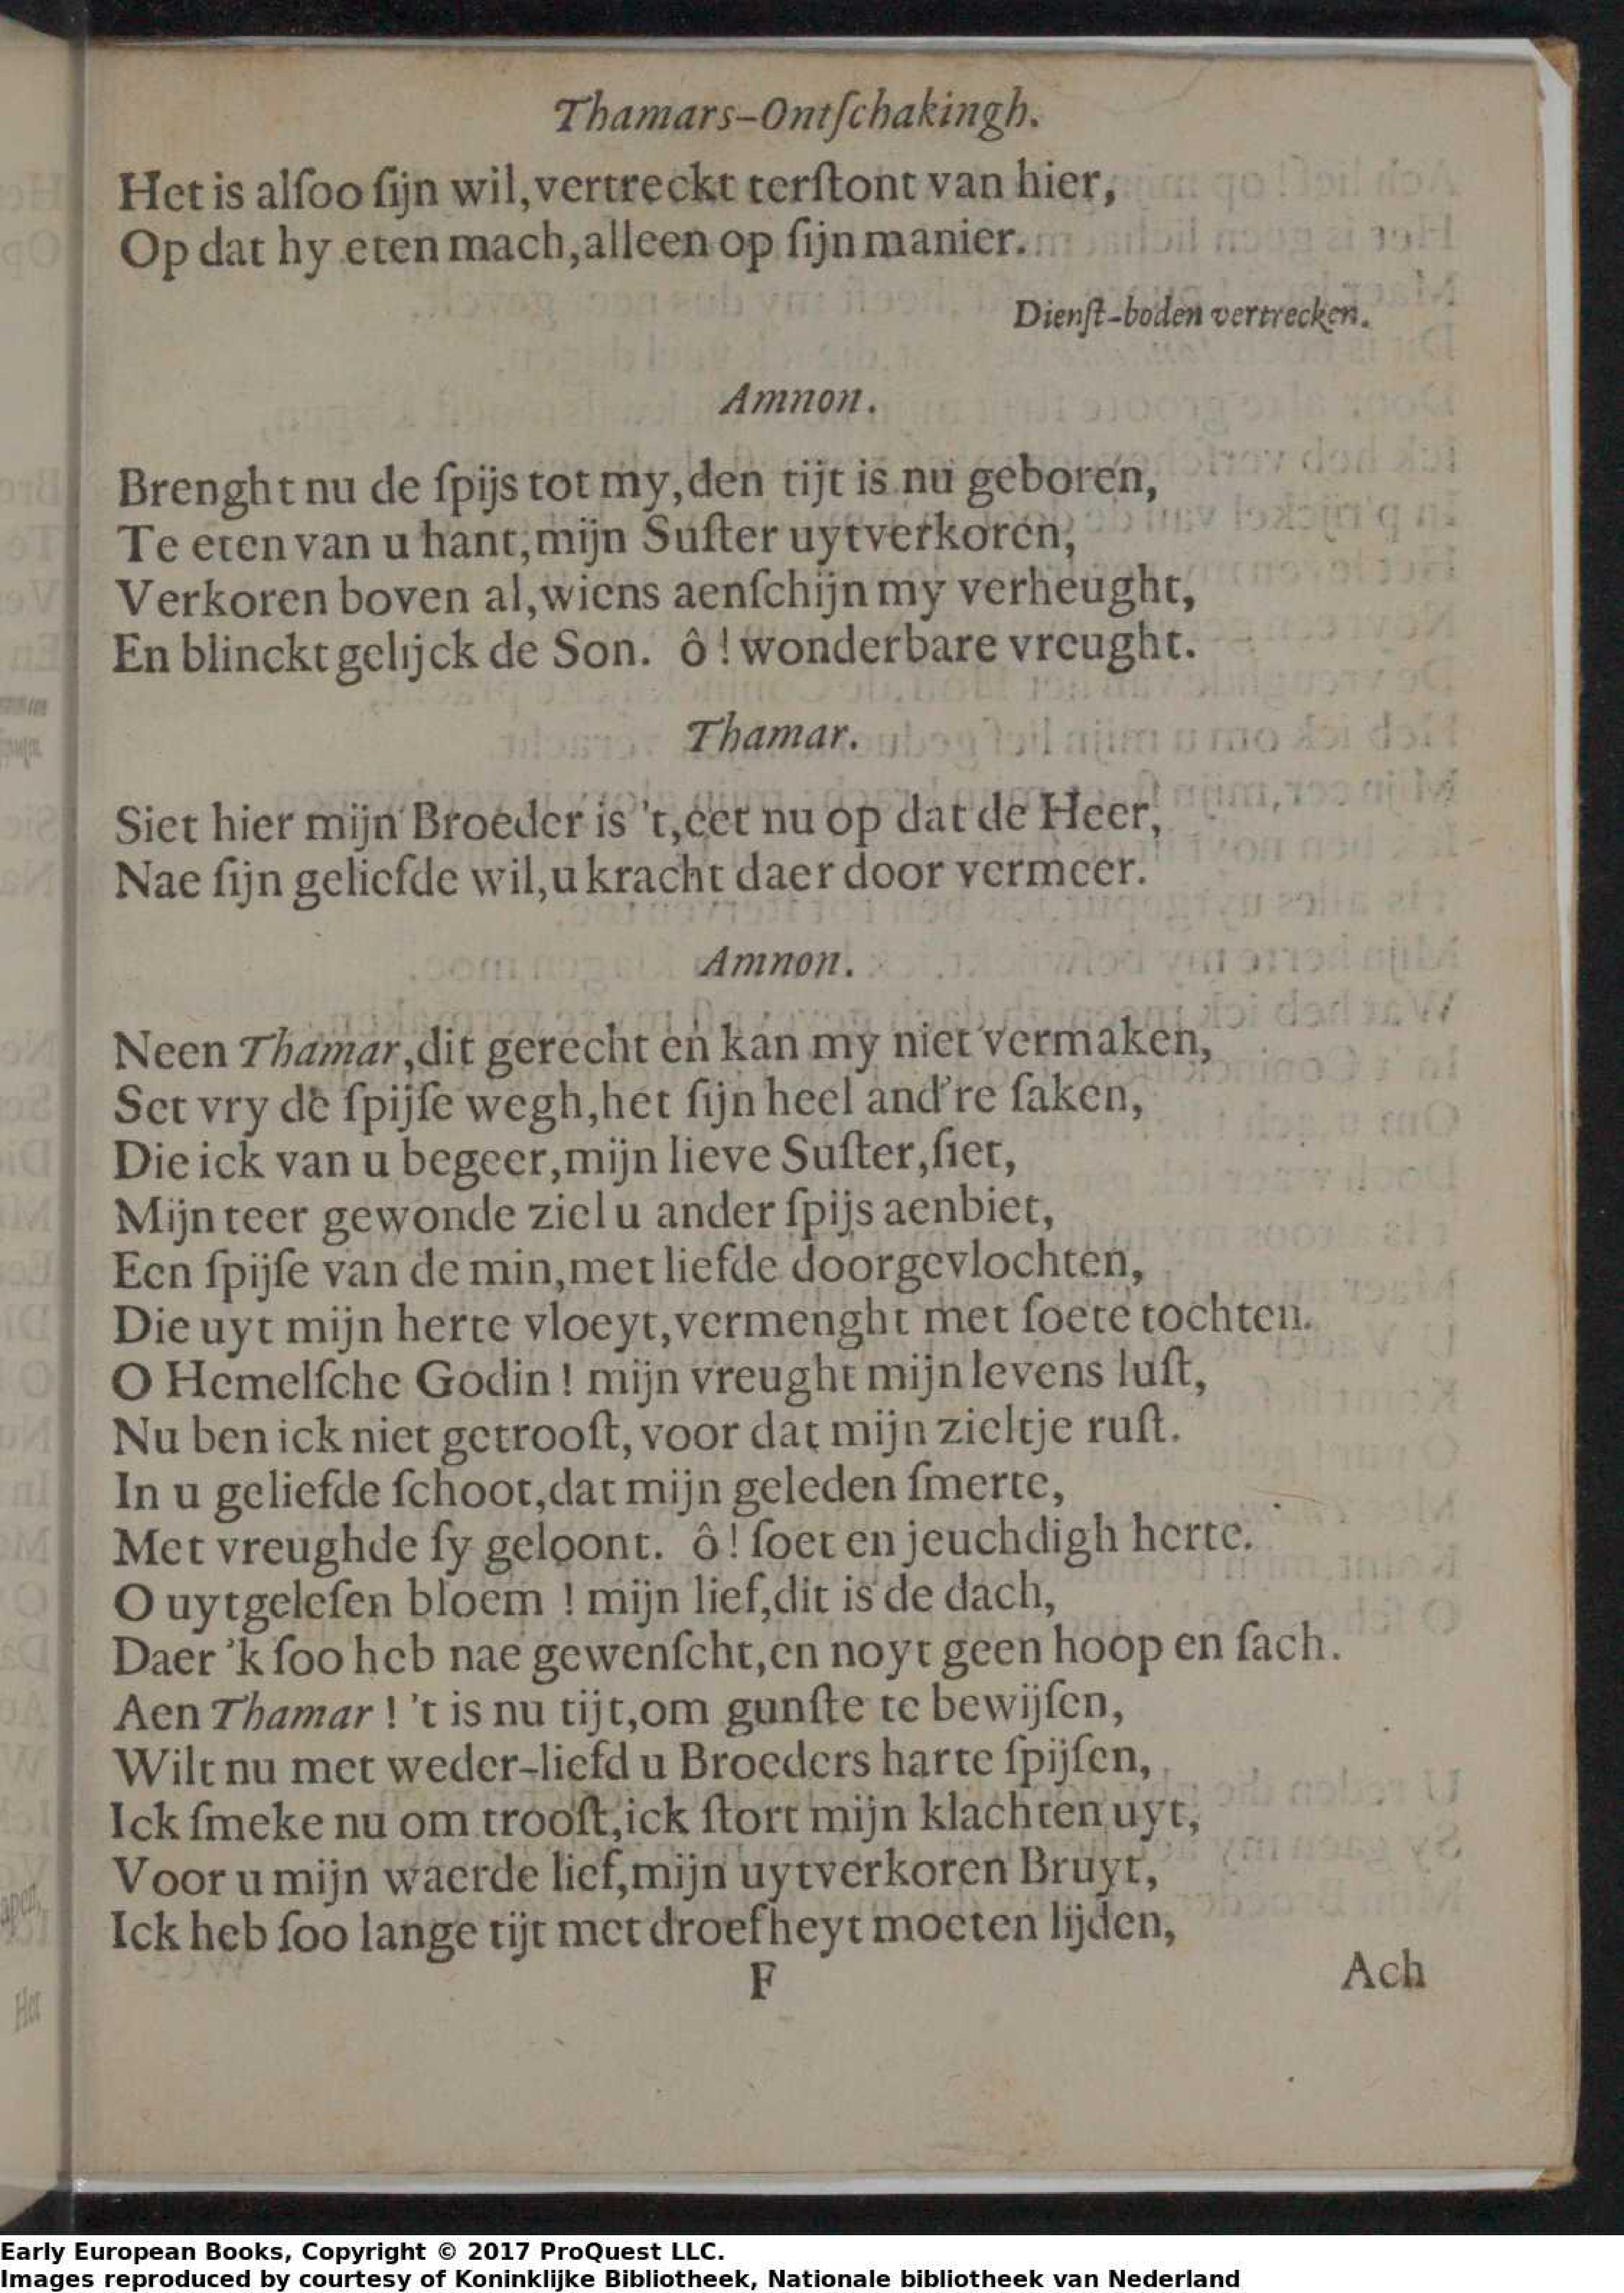 Thamars-Ontſchakingh.
Het is alſoo ſijn wil, vertreckt terſtont van hier,
Op dat hy eten mach, alleen op ſijn manier.
Dienſt-boden vertrecken.
Amnon.
Brenght nu de ſpijs tot my, den tijt is nu geboren,
Te eten van u hant, mijn Suſter uytverkoren,
Verkoren boven al, wiens aenſchijn my verheught,
En blinckt gelijck de Son. ô! wonderbare vreught.
Thamar.
Siet hier mijn Broeder is 't, eet nu op dat de Heer,
Nae ſijn geliefde wil, u kracht daer door vermeer.
Amnon.
Neen Thamar, dit gerecht en kan my niet vermaken,
Set vry de ſpijſe wegh, het ſijn heel and're ſaken,
Die ick van u begeer, mijn lieve Suſter, ſiet,
Mijn teer gewonde ziel u ander ſpijs aenbiet,
Een ſpijſe van de min, met liefde doorgevlochten,
Die uyt mijn herte vloeyt, vermenght met ſoete tochten.
O Hemelſche Godin! mijn vreught mijn levens luſt,
Nu ben ick niet getrooſt, voor dat mijn zieltje ruſt.
In u geliefde ſchoot, dat mijn geleden ſmerte,
Met vreughde ſy geloont. ô! ſoet en jeuchdigh herte.
O uytgeleſen bloem! mijn lief, dit is de dach,
Daer 'k ſoo heb nae gewenſcht, en noyt geen hoop en ſach.
Aen Thamar! 't is nu tijt, om gunſte te bewijſen,
Wilt nu met weder-liefd u Broeders harte ſpijſen,
Ick ſmeke nu om trooſt, ick ſtort mijn klachten uyt,
Voor u mijn waerde lief, mijn uytverkoren Bruyt,
Ick heb ſoo lange tijt met droefheyt moeten lijden,
F
Ach
Early European Books, Copyright © 2017 ProQuest LLC.
Images reproduced by courtesy of Koninklijke Bibliotheek, Nationale bibliotheek van Nederland